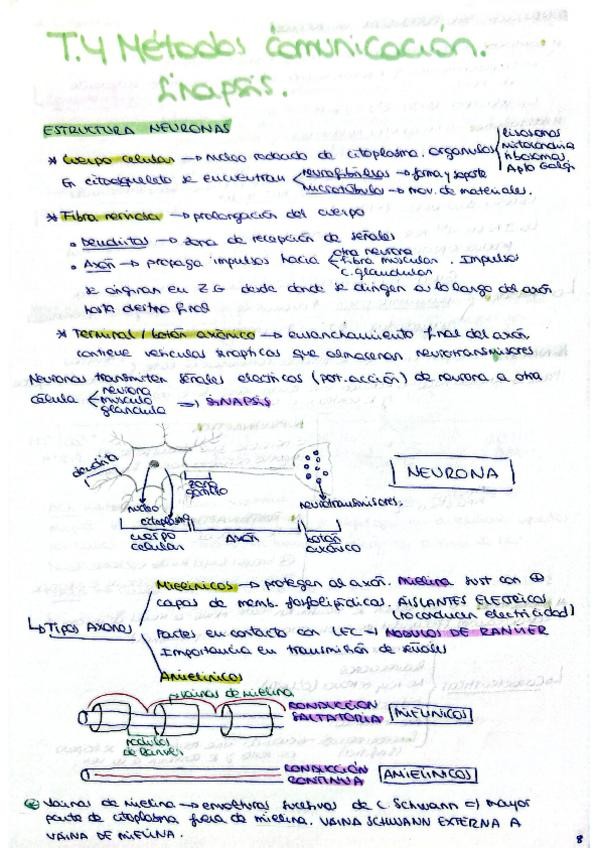 T.4 Métodos comunicación.
Sinapsis.
ESTRUCTURA NEURONAS
* Cuerpo celular → núcleo rodeado de citoplasma. organulos lisosomas
mitocondria
ribosomas
Apto Golgi
En citoesqueleto se encuentran neurofibrillas → forma y soporte
microtúbulos → mov. de materiales.
* Fibra nerviosa → prolongación del cuerpo
• Dendritas → zona de recepción de señales
• Axón → propaga impulsos hacia otra neurona
fibra muscular. Impulsos
c. glandular
se originan en Z.G desde donde se dirigen a lo largo del axón
hasta destino final
* Terminal / botón axónico → ensanchamiento final del axón,
contiene vesículas sinápticas que almacenan neurotransmisores
Neuronas transmiten señales electricas (pot. acción) de neurona a otra
célula neurona
musculo
glandula ⇒ SINAPSIS
dendrita
zona
gatillo
núcleo
citoplasma
cuerpo
celular
Axón
neurotransmisores.
botón
axónico
NEURONA
↳ Tipos Axones
Mielínicos → protegen al axón. mielina sust con ⊕
capas de memb. fosfolipídicas. AISLANTES ELECTRICOS
(no conducen electricidad)
Partes en contacto con LEC → NODULOS DE RANVIER
Importancia en transmisión de señales
Amielínicos
vainas de mielina
nodulos
de Ranvier
CONDUCCION
SALTATORIA
MIELINICOS
CONDUCCIÓN
CONTINUA
AMIELINICOS
vainas de mielina → envolturas sucesivas de c. Schwann ⇒ mayor
parte de citoplasma fuera de mielina. VAINA SCHWANN EXTERNA A
VAINA DE MIELINA.
8